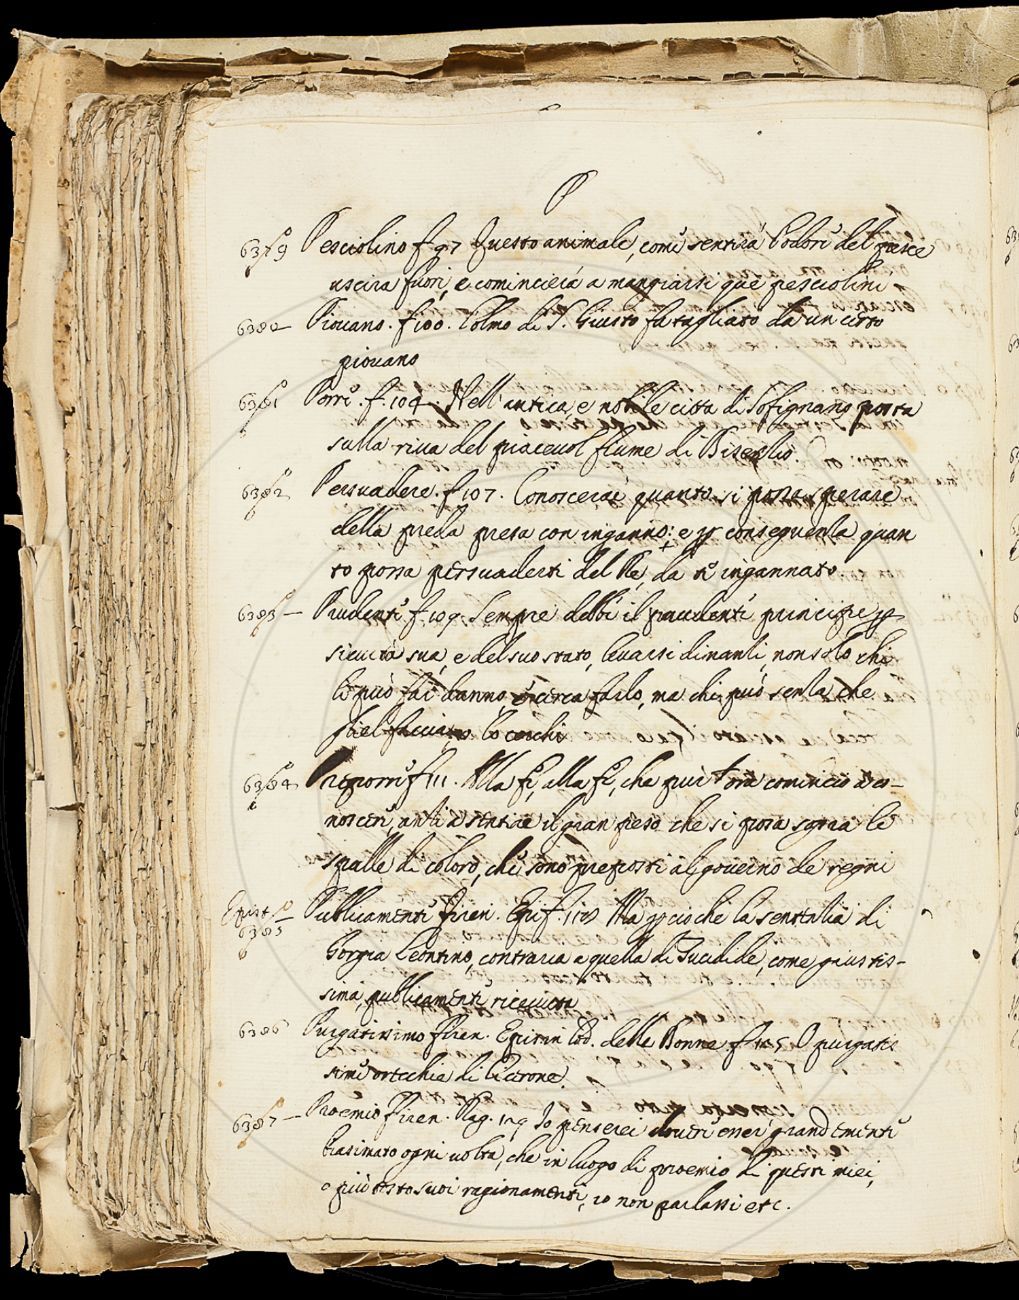 P
6379 Pesciolino f. 97 Questo animale, come sentirà l'odore del pesce
uscira fuori, e comincierà a mangiarsi que pesciolini
6380 Piovano. f. 100. l'olmo di S. Giusto fu tagliato da un certo
piovano
6381 Porre. f. 104. Nell'antica, e nobile citta di Sofignano posta
sulla riva del piacevol fiume di Bisenzio.
6382 Persuadere. f. 107. Conoscerai quanto si possa sperare
della preda presa con inganno; e p conseguenza quan
to possa persuaderti del Re, da te ingannato.
6383 — Prudente f. 109. Sempre debbe il prudente principe p
sicurtà sua, e del suo stato, levarsi dinanzi, non solo chi
lo può far danno e cerca farlo, ma chi può senza che
gliel facciano lo cerchi
6384 Preporre f. 111. Alla fe, alla fe, che pur ora comincio a co-
noscere, anzi a sentire il gran peso, che si posa sopra le
spalle di coloro, che sono preposti al governo de regni
Epist. 6385 — Publicamente firen. Epist. 118 Ma p cio che la sentenzia di
Gorgia Leontino, contraria a quella di Tucidide, come giustis-
sima, publicamente ricevuta
6386 Purgatissimo firen. Epist. in lod. delle Donne f. 125 O purgatis
sime orecchie di Cicerone.
6387 — Proemio firen. Rag. 129 Io penserei dovere esser grandemente
biasimato ogni volta, che in luogo di proemio di questi miei,
o più tosto suoi ragionamenti, io non parlassi etc.